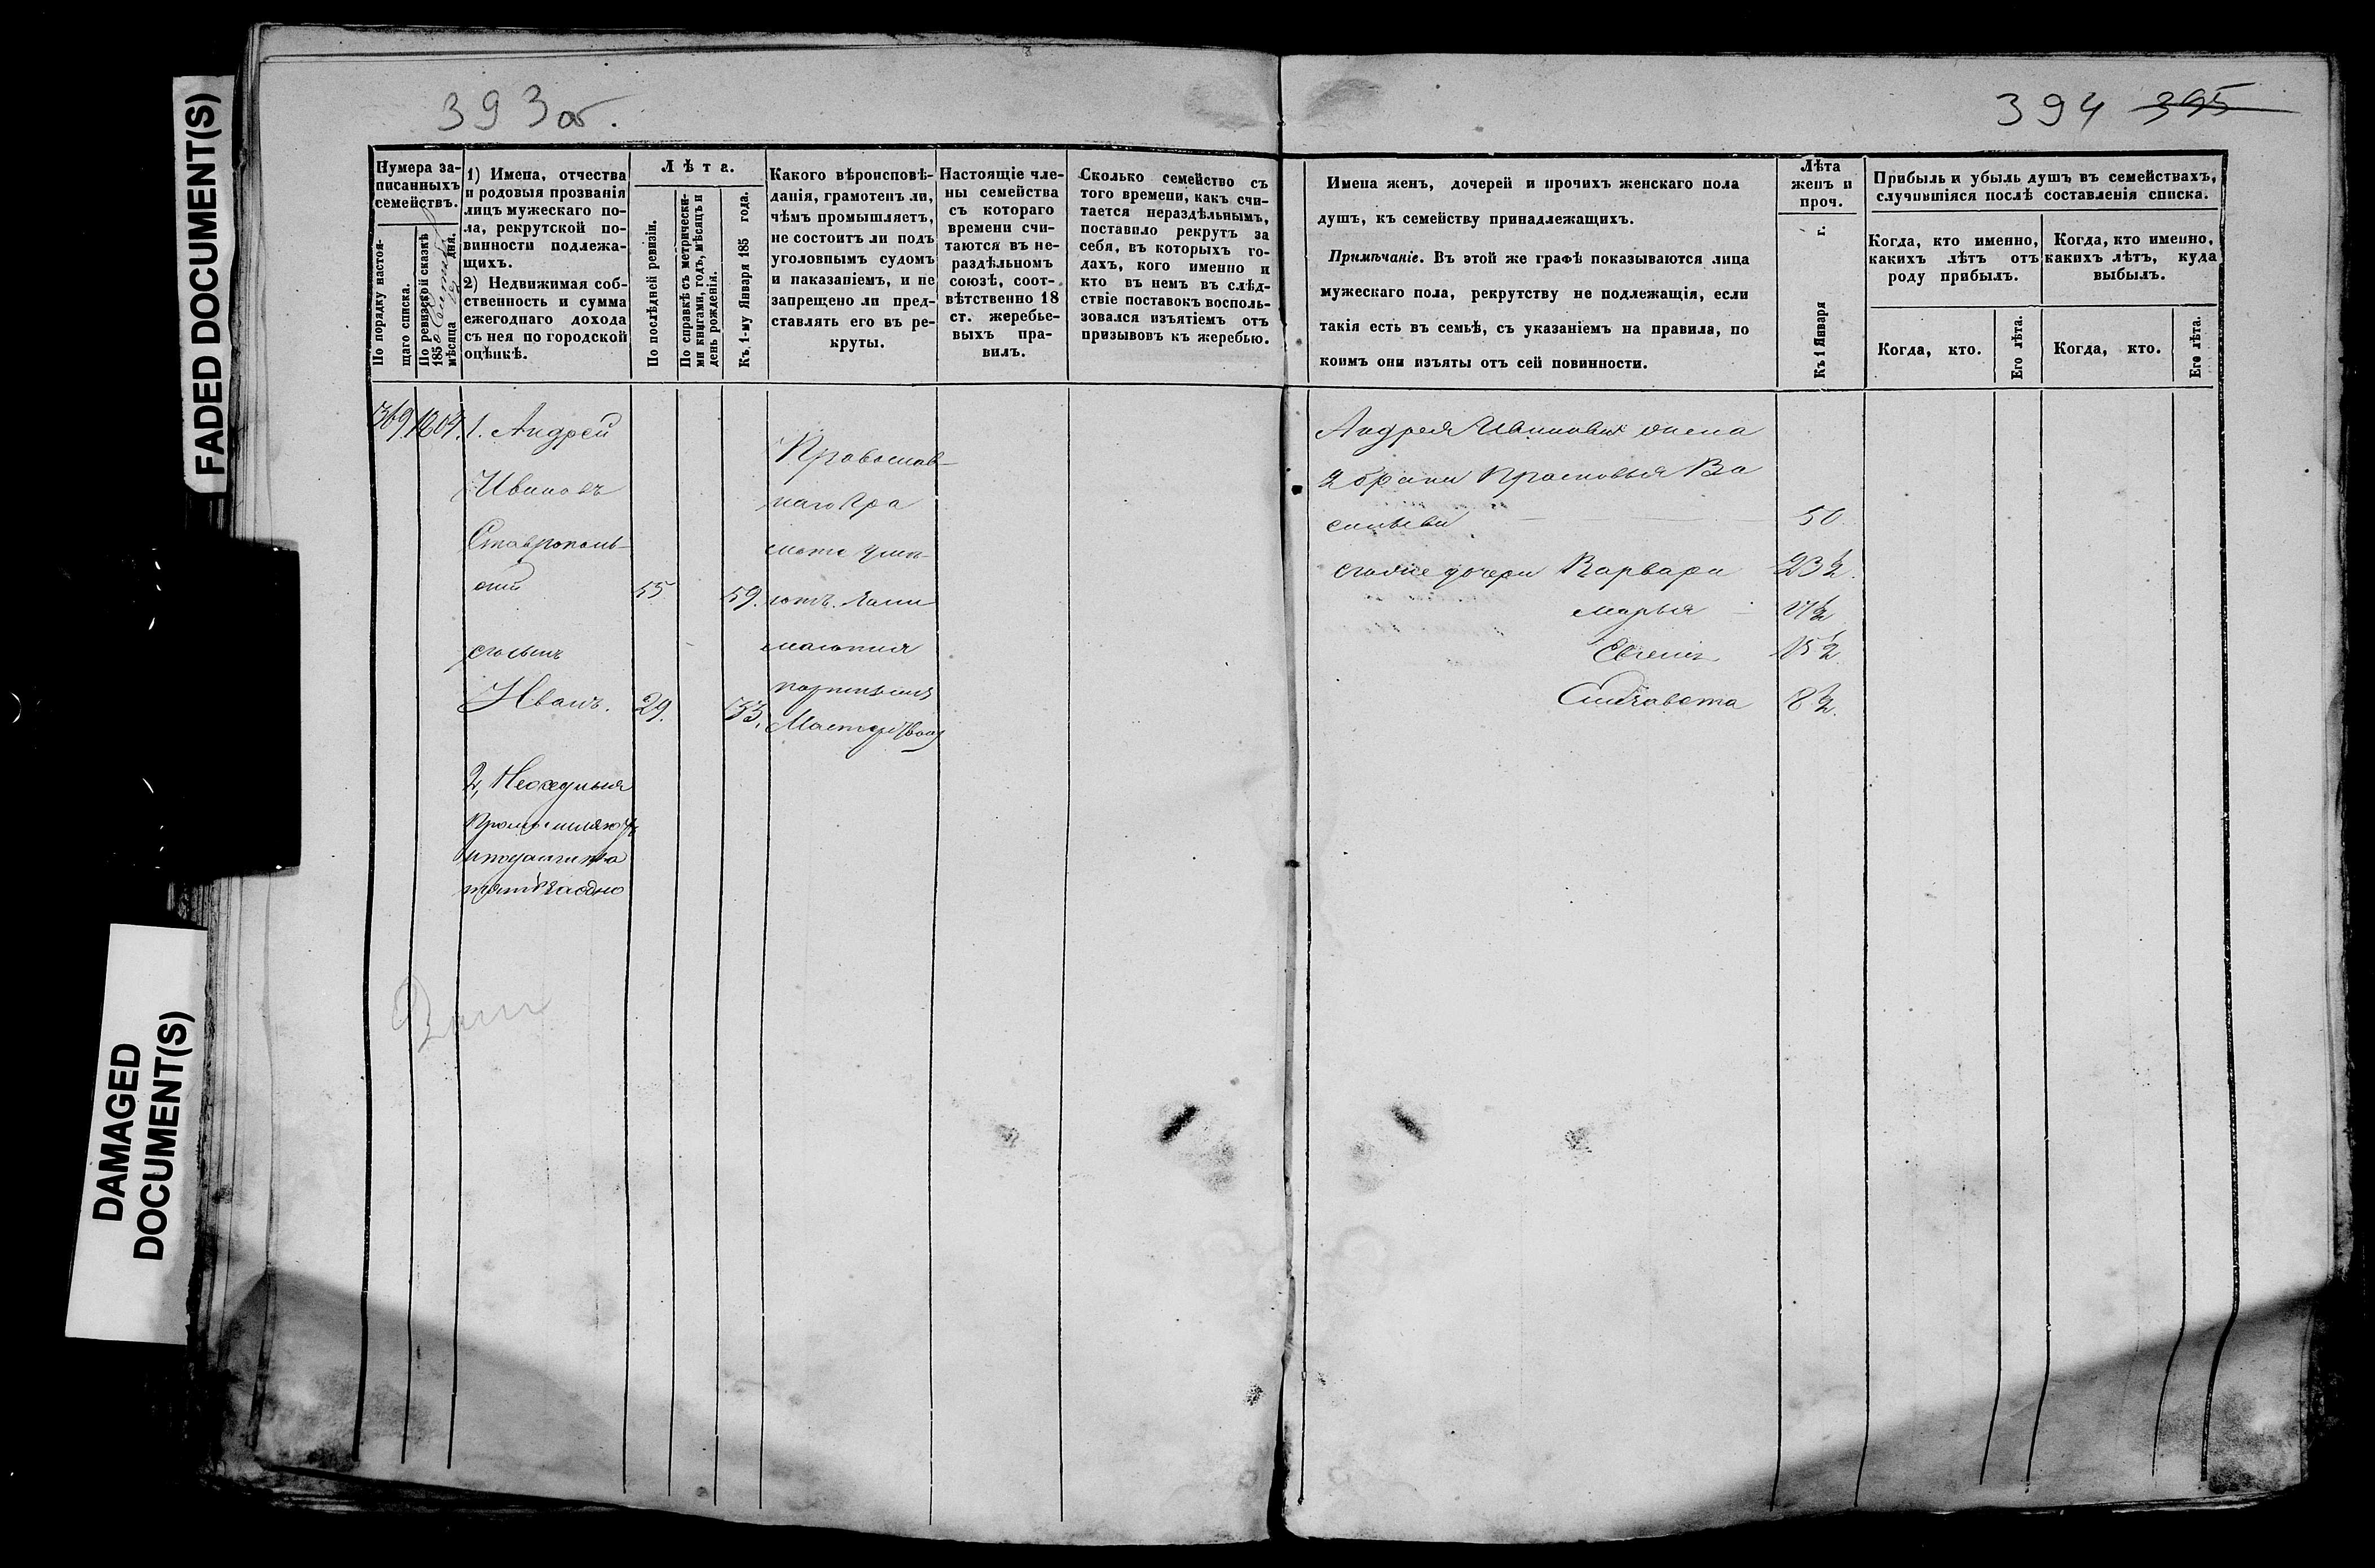 FADED DOCUMENT(S)
DAMAGED
DOCUMENT(S)
393об.
Нумера за-
писанныхъ
семействъ.
По порядку настоя-
щаго списка.
По ревизской сказкѣ
185
мѣсяца дня.
1) Имена, отчества
и родовыя прозванія
лицъ мужескаго по-
ла, рекрутской по-
винности подлежа-
щихъ.
2) Недвижимая соб-
ственность и сумма
ежегоднаго дохода
съ нея по городской
оцѣнкѣ.
Лѣта.
По послѣдней ревизіи.
По справкѣ съ метрически-
ми книгами, годъ, мѣсяцъ и
день рожденія.
Къ 1-му Января 185 года.
Какого вѣроисповѣ-
данія, грамотенъ ли,
чѣмъ промышляетъ,
не состоитъ ли подъ
уголовнымъ судомъ
и наказаніемъ, и не
запрещено ли пред-
ставлять его въ ре-
круты.
Настоящіе чле-
ны семейства
съ котораго
времени счи-
таются въ не-
раздѣльномъ
союзѣ, соот-
вѣтственно 18
ст. жеребье-
выхъ пра-
вилъ.
Сколько семейство съ
того времени, какъ счи-
тается нераздѣльнымъ,
поставило рекрутъ за
себя, въ которыхъ го-
дахъ, кого именно и
кто въ немъ въ слѣд-
ствіе поставокъ восполь-
зовался изъятіемъ отъ
призывовъ къ жеребью.
369. 1204. 1. Андрей
Ивановъ
Ставрополь-
скій 55 59.
сынъ
Иванъ. 29. 33.
2, Неоседлыя
Православ-
наго Гра
мате
ютъ.
маются
портнымъ
Мастерством
394 395
Имена женъ, дочерей и прочихъ женскаго пола
душъ, къ семейству принадлежащихъ.
Примѣчаніе. Въ этой же графѣ показываются лица
мужескаго пола, рекрутству не подлежащія, если
такія есть въ семьѣ, съ указаніемъ на правила, по
коимъ они изъяты отъ сей повинности.
Лѣта
женъ и
проч.
Къ 1 Января г.
Прибыль и убыль душъ въ семействахъ,
случившіяся послѣ составленія списка.
Когда, кто именно,
какихъ лѣтъ отъ
роду прибылъ.
Когда, кто именно,
какихъ лѣтъ, куда
выбылъ.
Когда, кто.
Его лѣта.
Когда, кто.
Его лѣта.
Андрея Иванова жена
2 брака Прасковья Ва
сильева 50
дочери Варвара 23½.
Марья 17½
Евгенія 15½.
Елизавета 8½.